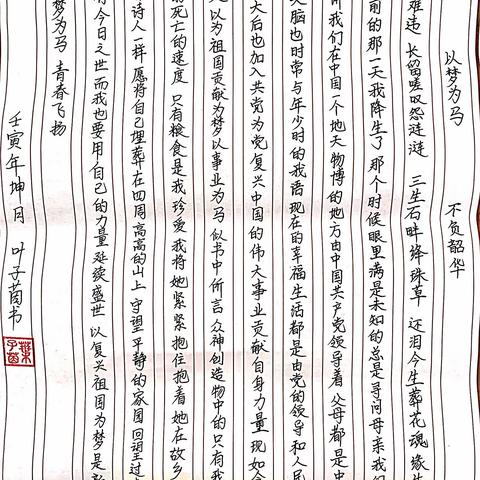 以梦为马 不负韶华
难违 长留嗟叹怨涟涟 三生石畔绛珠草 还泪今生葬花魂 缘
前的那一天我降生了 那个时候眼里满是未知的总是寻问母亲我们
所我们在中国一个地大物博的地方由中国共产党领导着 父母都是中
大脑也时常与年少时的我语现在的幸福生活都是由党的领导和人民
大后也加入共党为党复兴中国的伟大事业贡献自身力量 现如今
以为祖国贡献为梦以事业为马 似书中所言 众神创造物中的只有我
死亡的速度 只有粮食是我珍爱我将她紧紧抱住抱着她在故乡
诗人一样愿将自己埋葬在四周高高的山上 守望平静的家园回望过
今日之世而我也要用自己的力量延续盛世 以复兴祖国为梦是
梦为马 青春飞扬
壬寅年坤月 叶子茵书